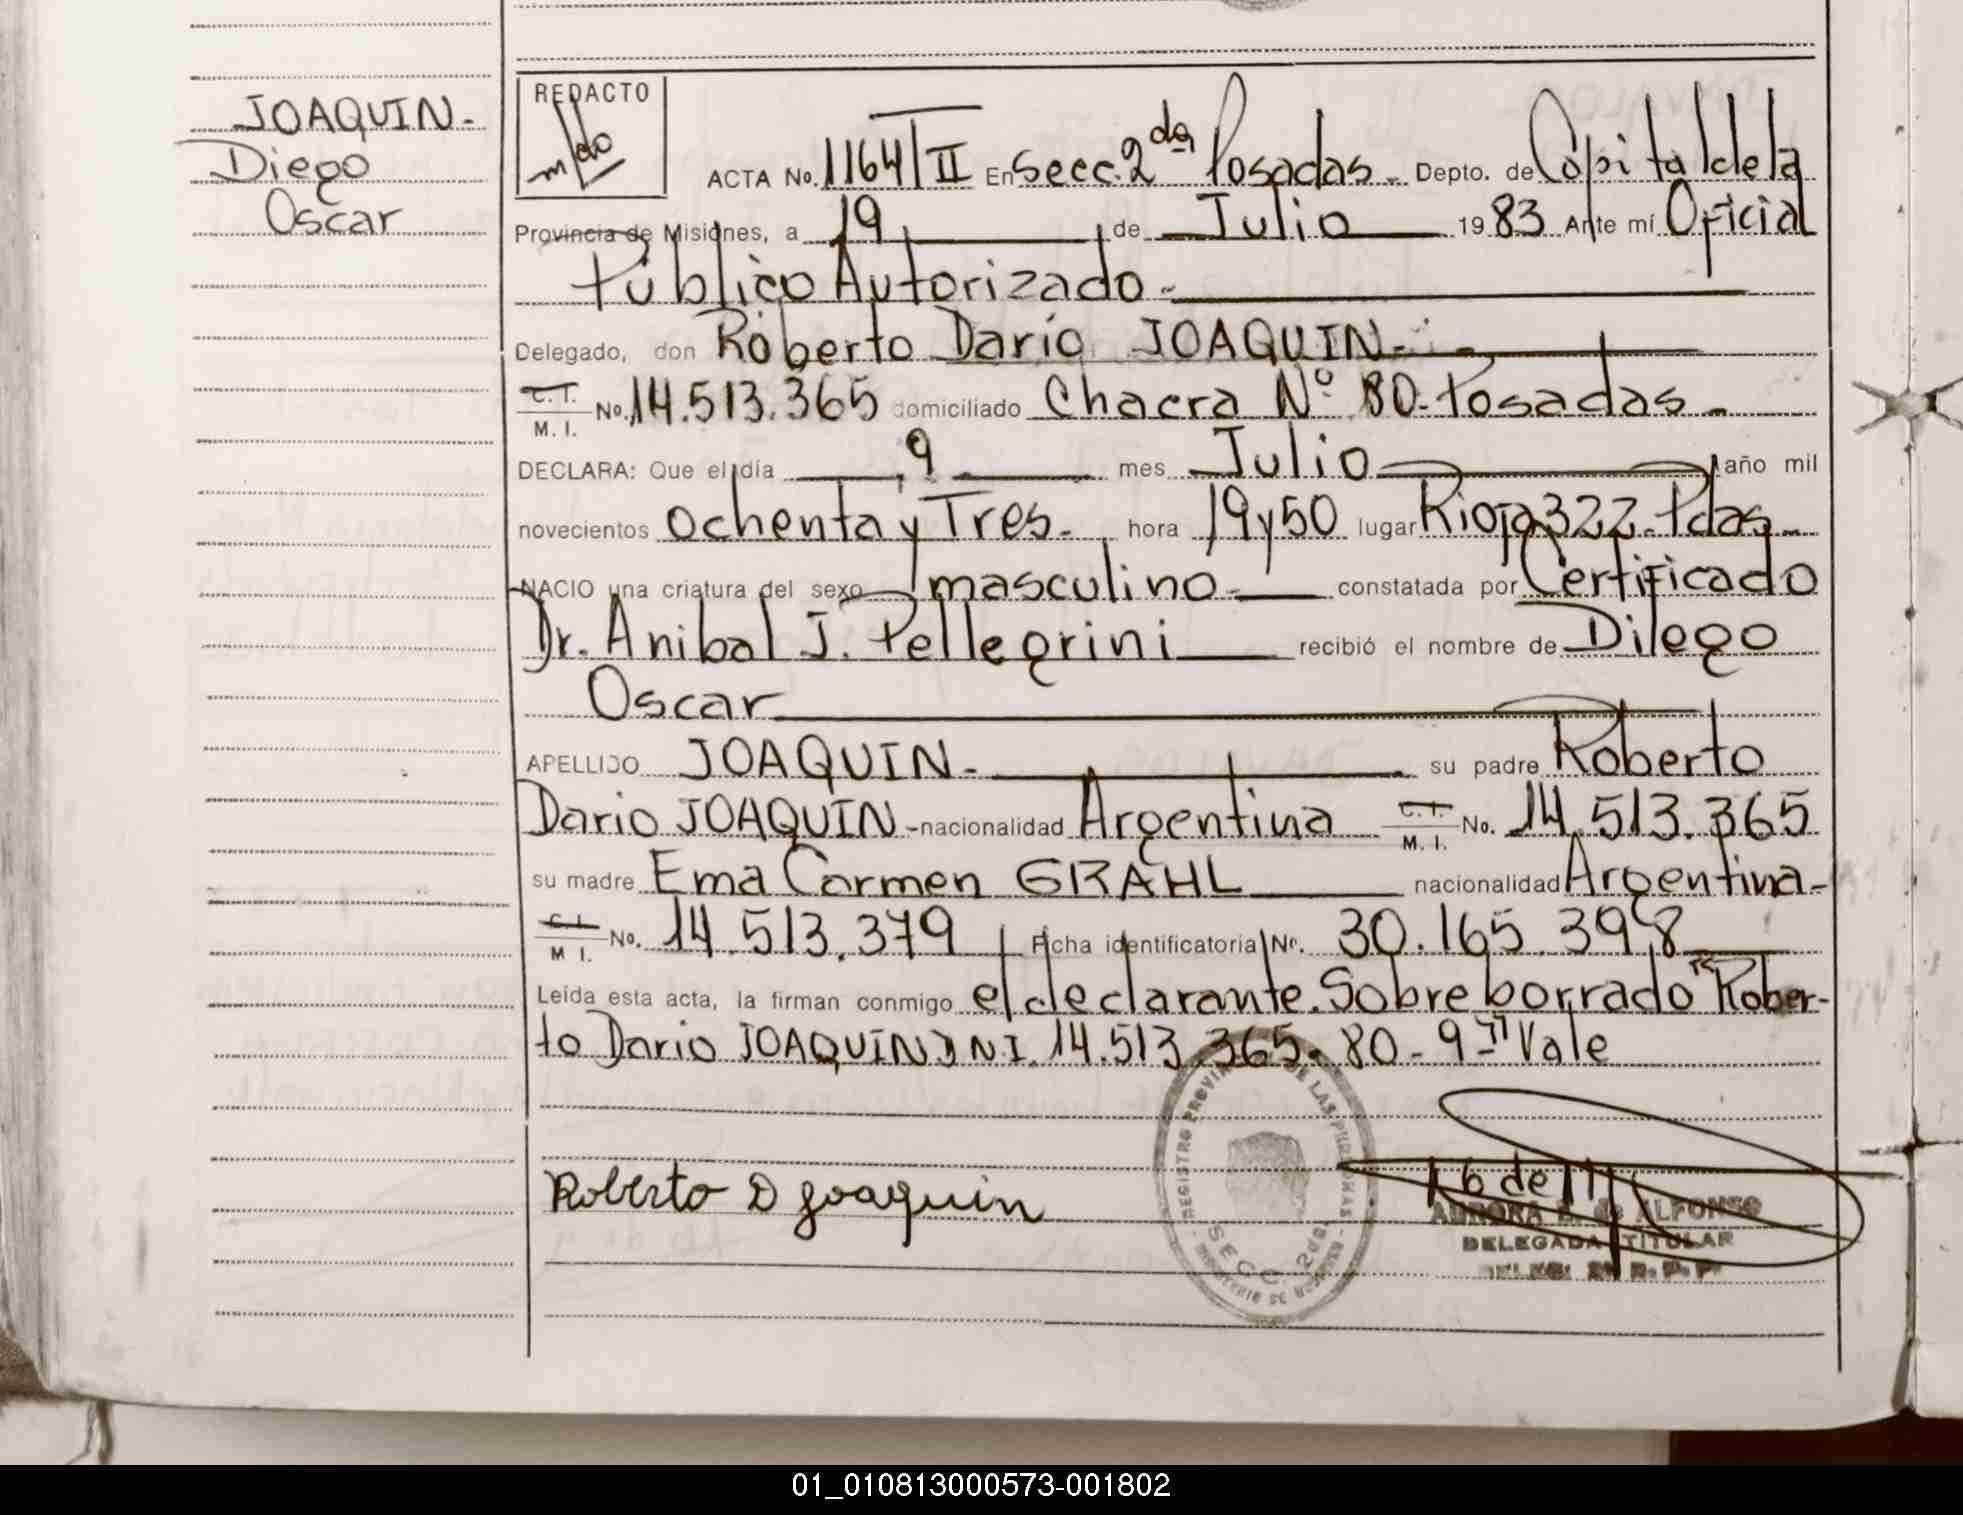 JOAQUIN-
Diego
Oscar
REDACTO
ACTA No. 1164/II En Secc. 2da Posadas- Depto. de Capital de la
Provincia de Misiones, a 19 de Julio 1983 Ante mí Oficial
Público Autorizado-
Delegado, don Roberto Dario JOAQUIN-
C.I.
M. I. No. 14.513.365 domiciliado Chacra Nº 80-Posadas-
DECLARA: Que el día 9 mes Julio año mil
novecientos ochenta y Tres- hora 19y50 lugar Rioja 322-Pdas-
NACIO una criatura del sexo masculino- constatada por Certificado
Dr. Anibal J. Pellegrini recibió el nombre de Diego
Oscar
APELLIDO JOAQUIN- su padre Roberto
Dario JOAQUIN -nacionalidad Argentina C.I. M. I. No. 14.513.365
su madre Ema Carmen GRAHL nacionalidad Argentina-
C.I.
M I. No. 14.513.379 Ficha identificatoria Nr. 30.165.398
Leída esta acta, la firman conmigo el declarante. Sobre borrado "Rober-
to Dario JOAQUIN DNI. 14.513.365. 80-9-" Vale
Roberto D Joaquin
REGISTRO PROVINCIAL DE LAS PERSONAS
SECC. 2da
AURORA E. de ALFONSO
DELEGADA TITULAR
R. P. P.
01_010813000573-001802